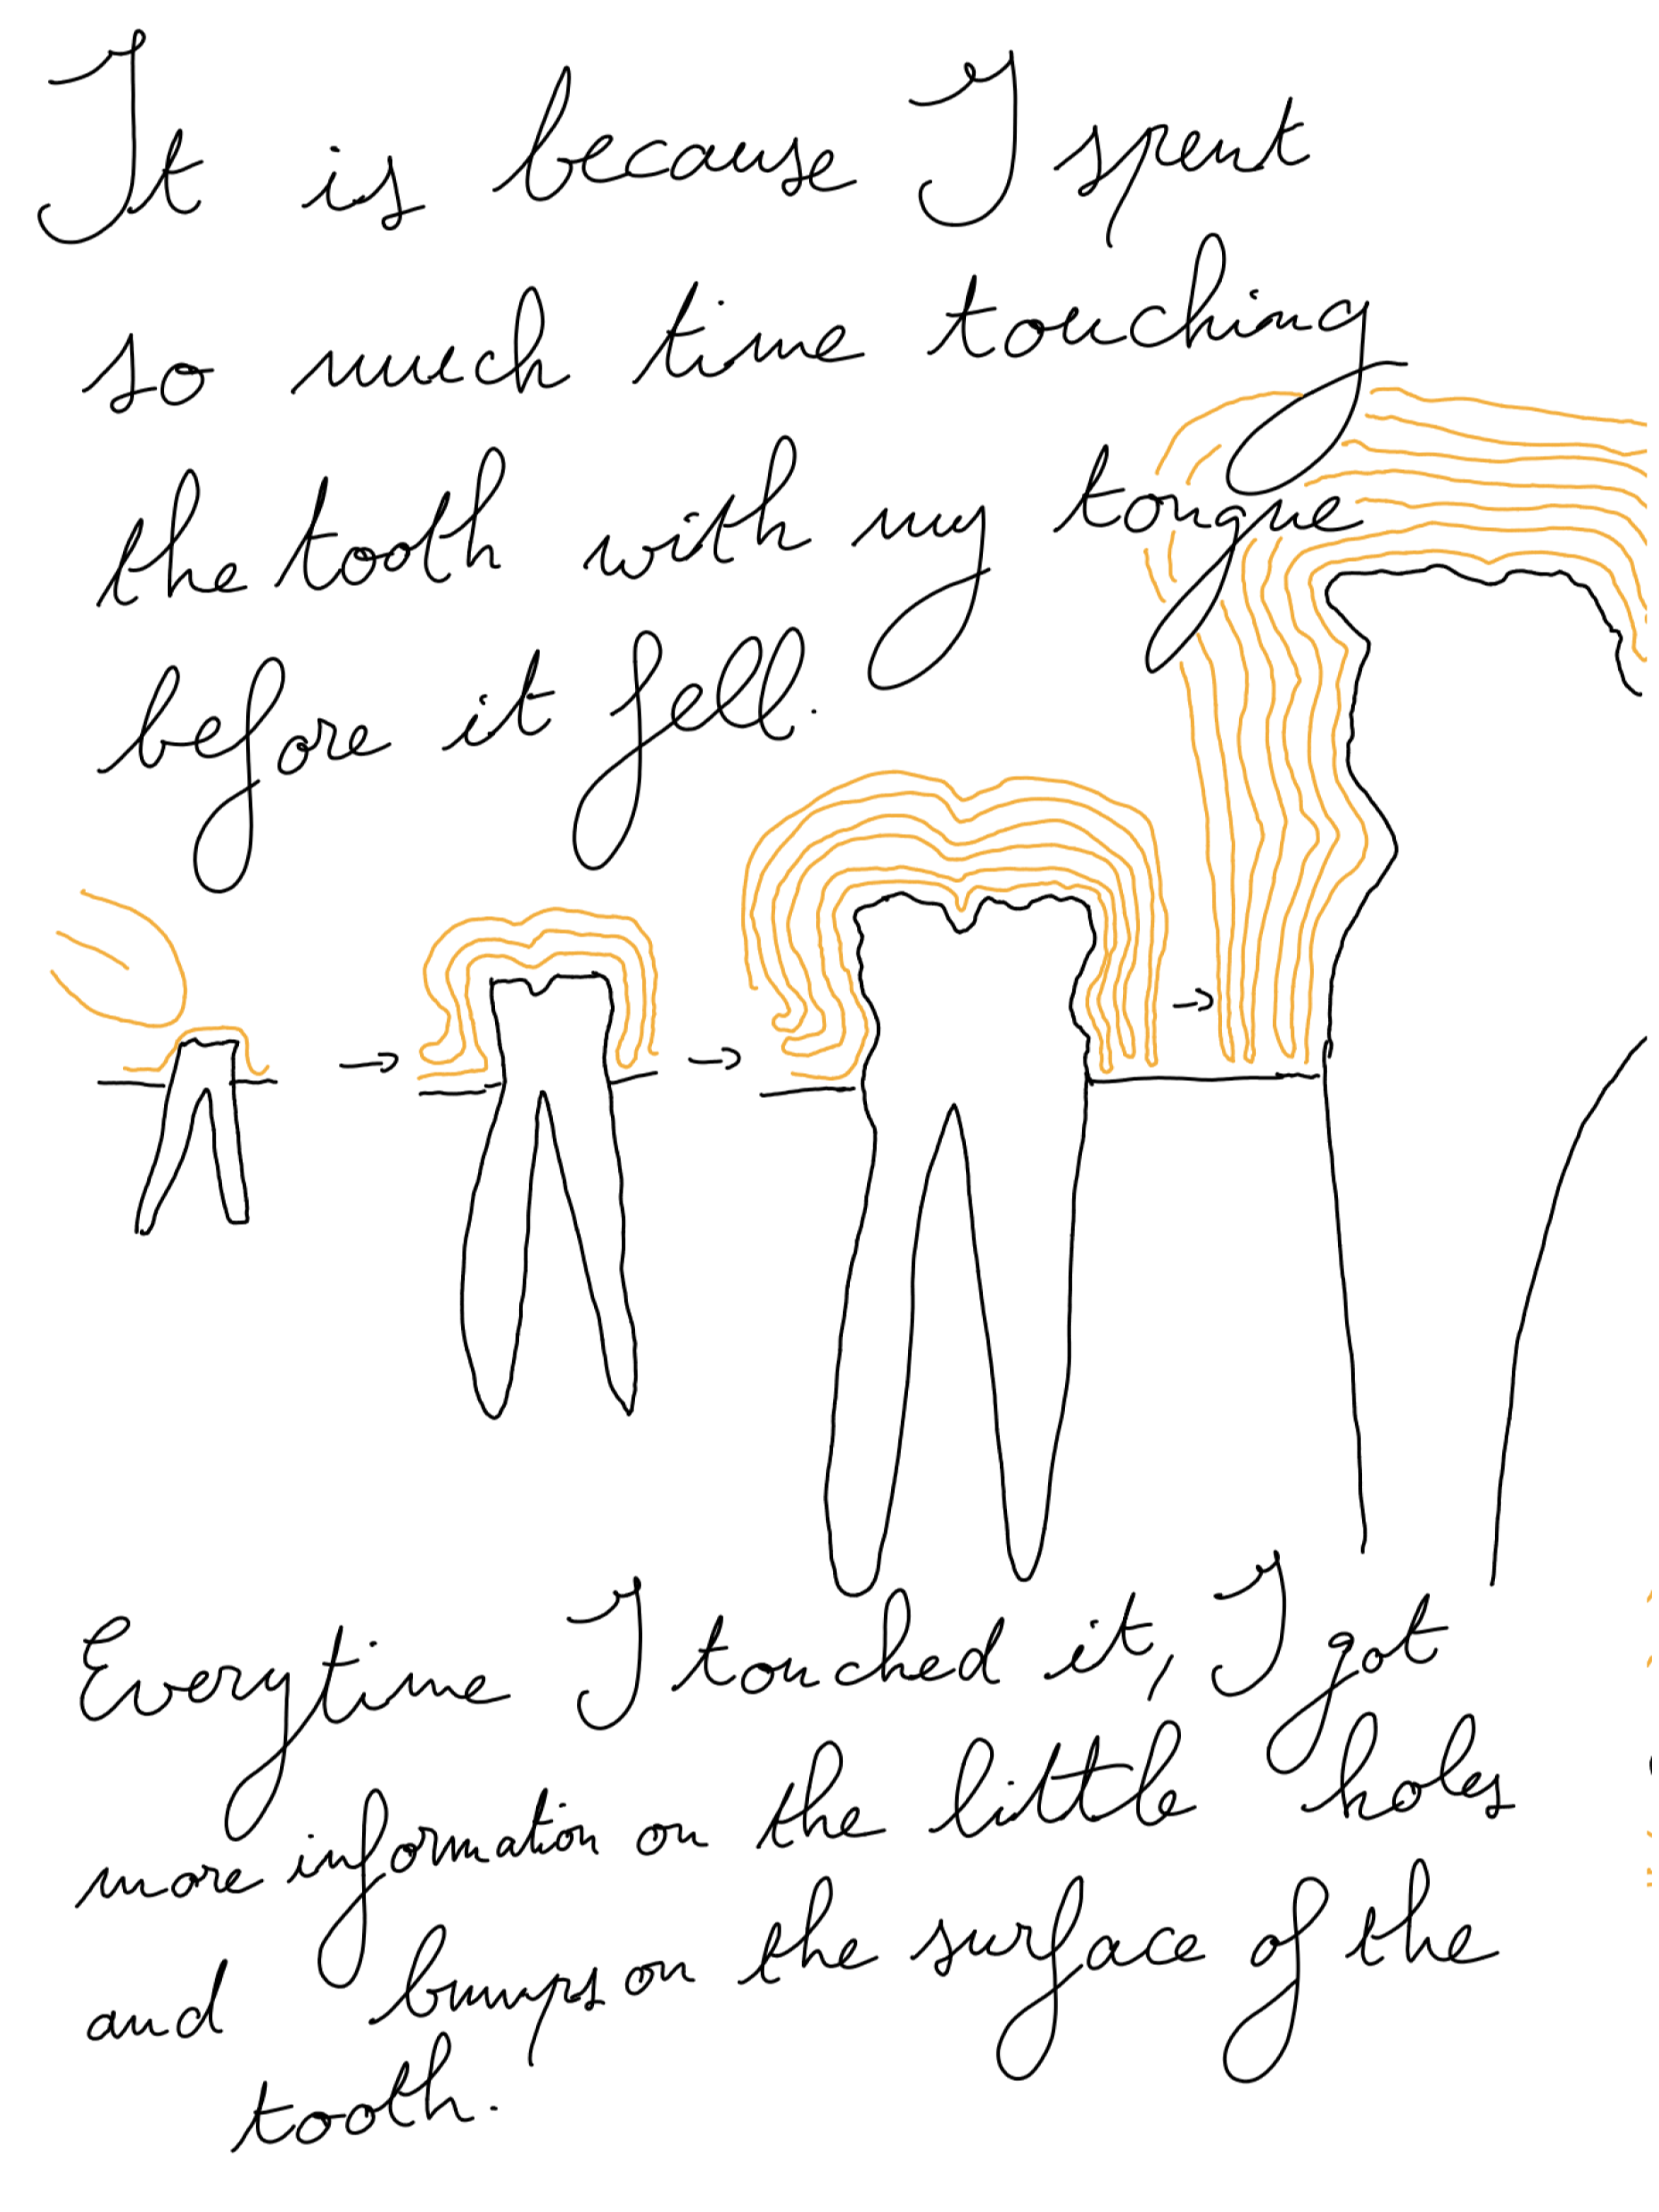 It is because I spent
so much time touching
the tooth with my tongue
before it fell.
Everytime I touched it, I got
more information on the little holes
and bumps on the surface of the
tooth.